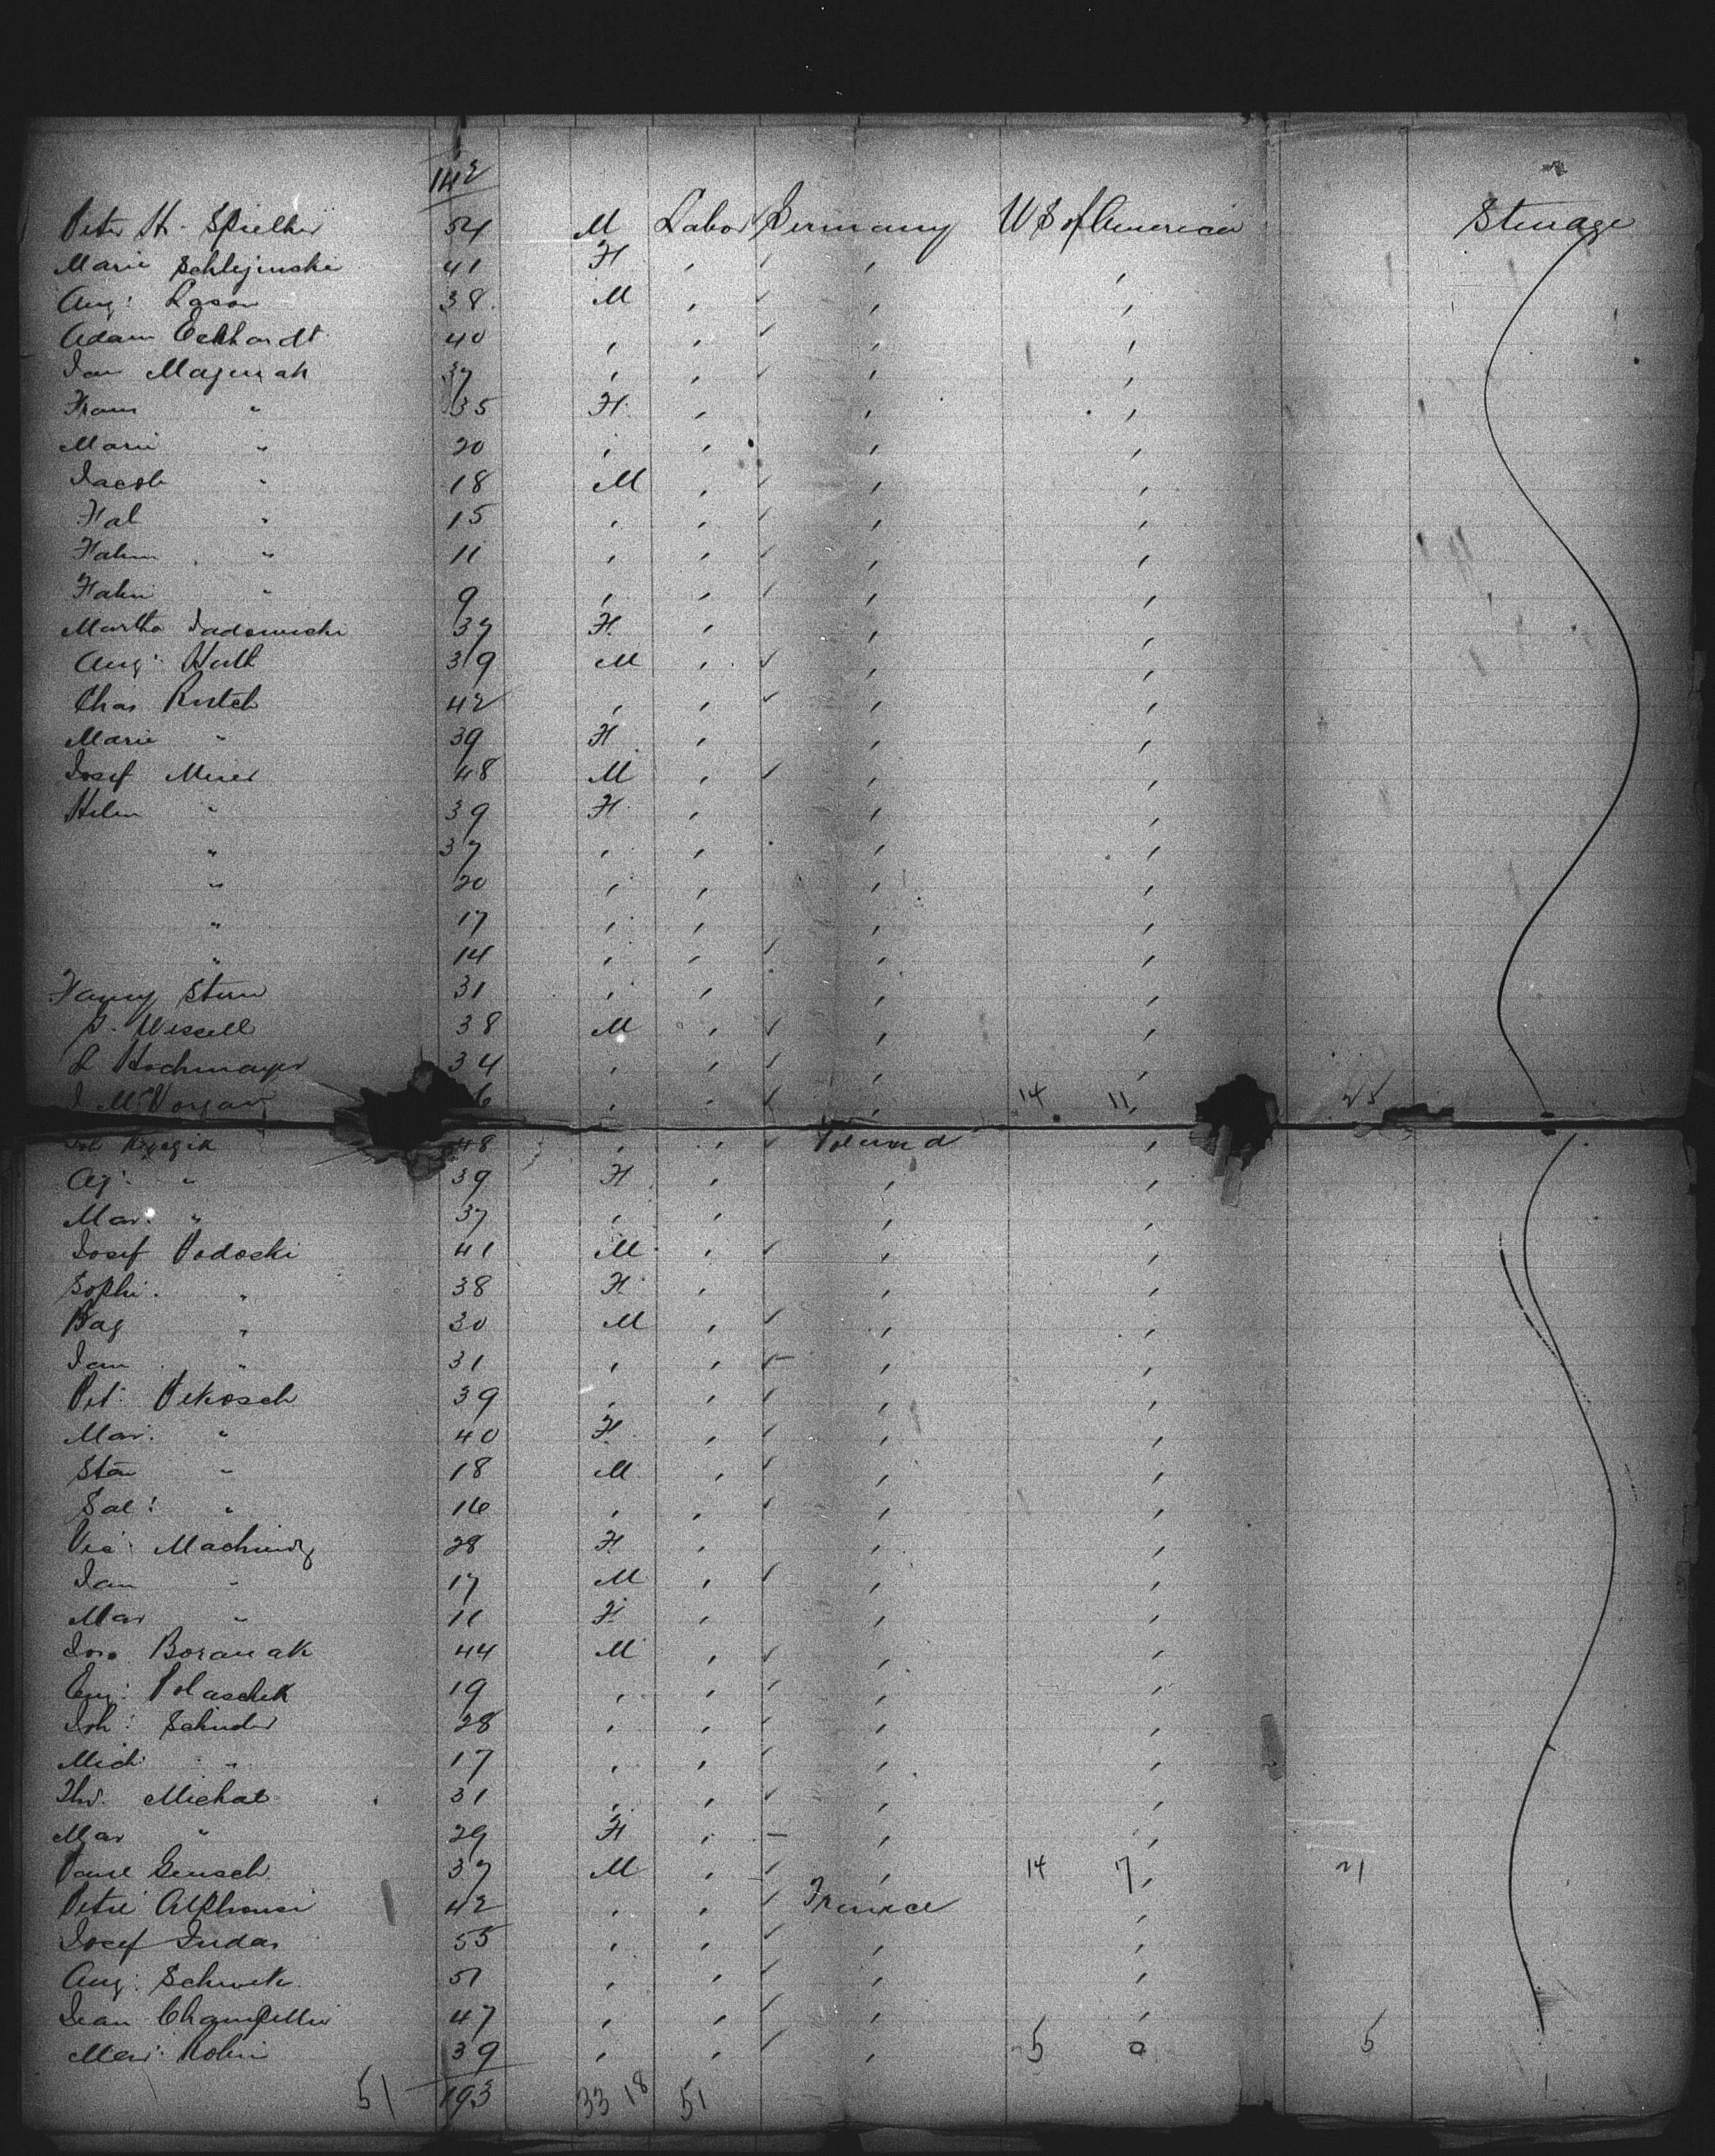 142
Peter H. Spielker 54 M Labor Germany US of America Steerage
Marie Schlejinski 41 F , ✓ , ,
Aug: Lason 38 M , ✓ , ,
Adam Eckhardt 40 , , ✓ , ,
Jan Majurah 37 , , ✓ , ,
Franz " 35 F , , ,
Marie " 20 , , , ,
Jacob " 18 M , ✓ , ,
Hal " 15 , , ✓ , ,
" 11 , , ✓ , ,
" 9 , , ✓ , ,
Martha 37 F , , ,
Aug: Huth 39 M , ✓ , ,
Chas Rutch 42 , , ✓ , ,
Marie " 39 F , , ,
Josef Meier 48 M , ✓ , ,
Helen " 39 F , , ,
" 37 , , , ,
" 20 , , , ,
" 17 , , , ,
" 14 , , ✓ , ,
Fanny Stern 31 , , , ,
J. Wessell 38 M , ✓ , ,
L Hochmayer 34 , , ✓ , ,
6 , , ✓ , 14 11, 25
48 , , ✓ Poland ,
Ag: " 39 F , , ,
Mar: " 37 , , , ,
Josef Podoski 41 M , ✓ , ,
Sophi. " 38 F , , ,
Bag " 30 M , ✓ , ,
Jan " 31 , , ✓ , ,
Pet: Pekosch 39 , , ✓ , ,
Mar: " 40 F , ✓ , ,
Stan " 18 M , ✓ , ,
Sal: " 16 , , ✓ , ,
Vic: 28 F , , ,
Jan " 17 M , ✓ , ,
Mar " 11 F , , ,
Jos. Boranak 44 M , ✓ , ,
Aug: Polaschek 19 , , ✓ , ,
Joh: Schuder 28 , , ✓ , ,
Mich: " 17 , , ✓ , ,
Michal 31 , , ✓ , ,
Mar " 29 F , – , ,
Paul Gensch 37 M , ✓ , 14 7, 21
Petre Alphonsi 42 , , ✓ France ,
Josef Judas 55 , , ✓ , ,
Aug: Schwek 51 , , ✓ , ,
Jean Champellier 47 , , ✓ , ,
Mar: Robin 39 , , ✓ , 5 0 5
51 193 33 18 51